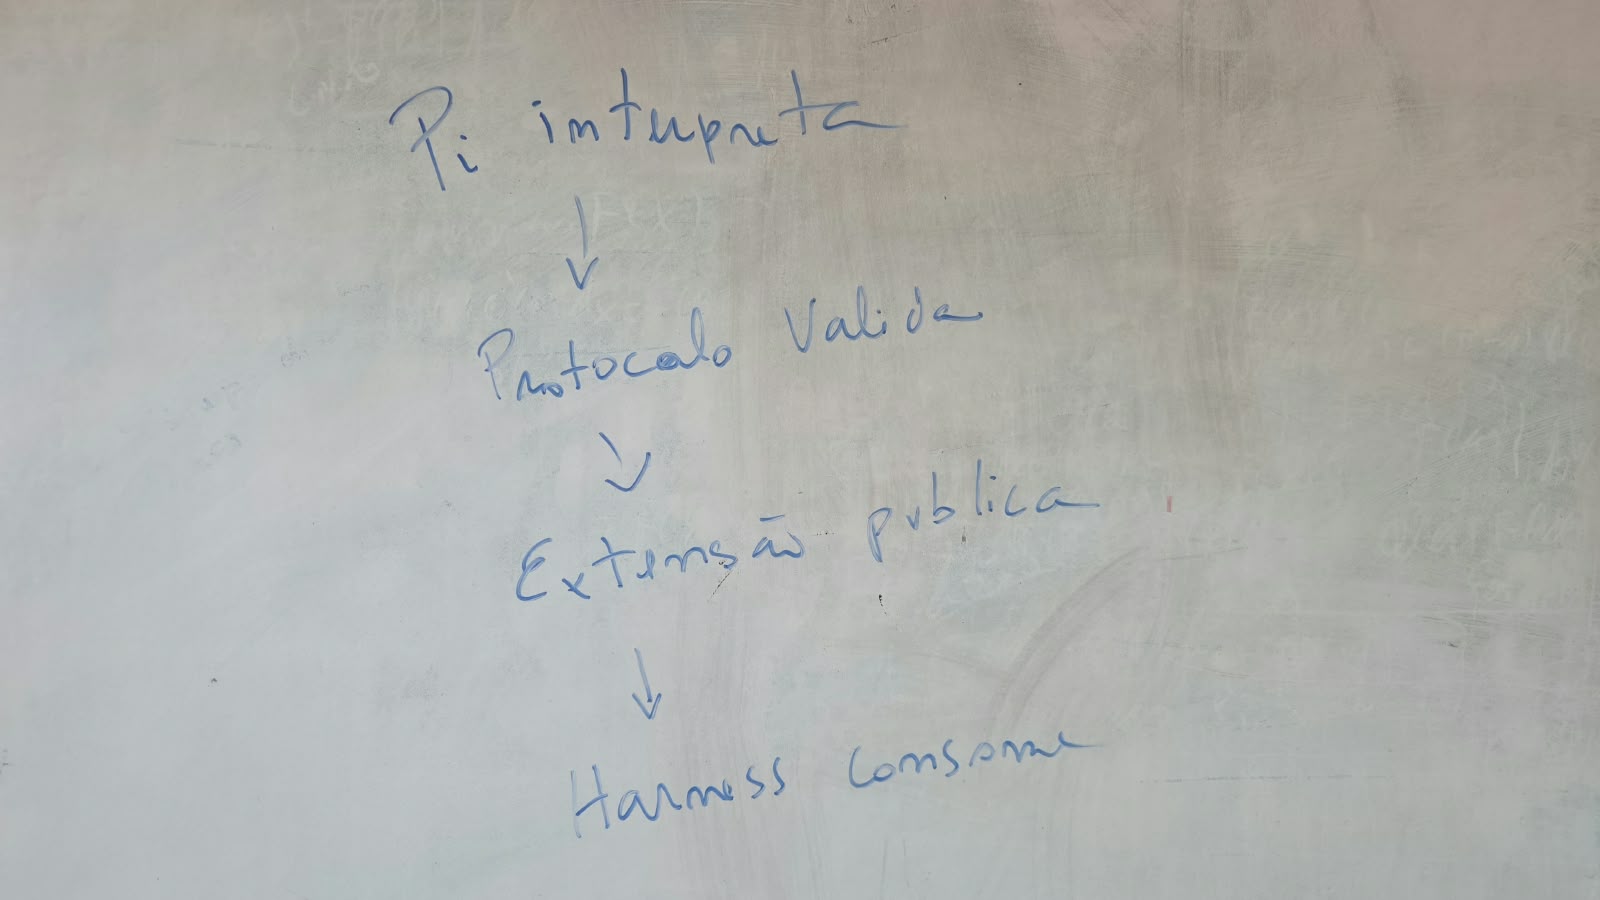 Pi interpreta
↓
Protocolo Valida
↓
Extensão publica
↓
Harness consome